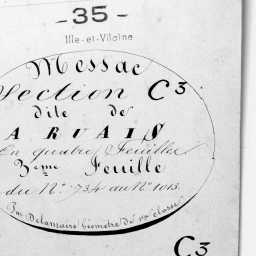 - 35 -
Ille-et-Vilaine
Messac
Section C3
dite de
ARUAIS
En quatre Feuilles
3ème Feuille
du N° 734 au N° 1013.
Par Delamaire Géomètre de 1re classe
C3